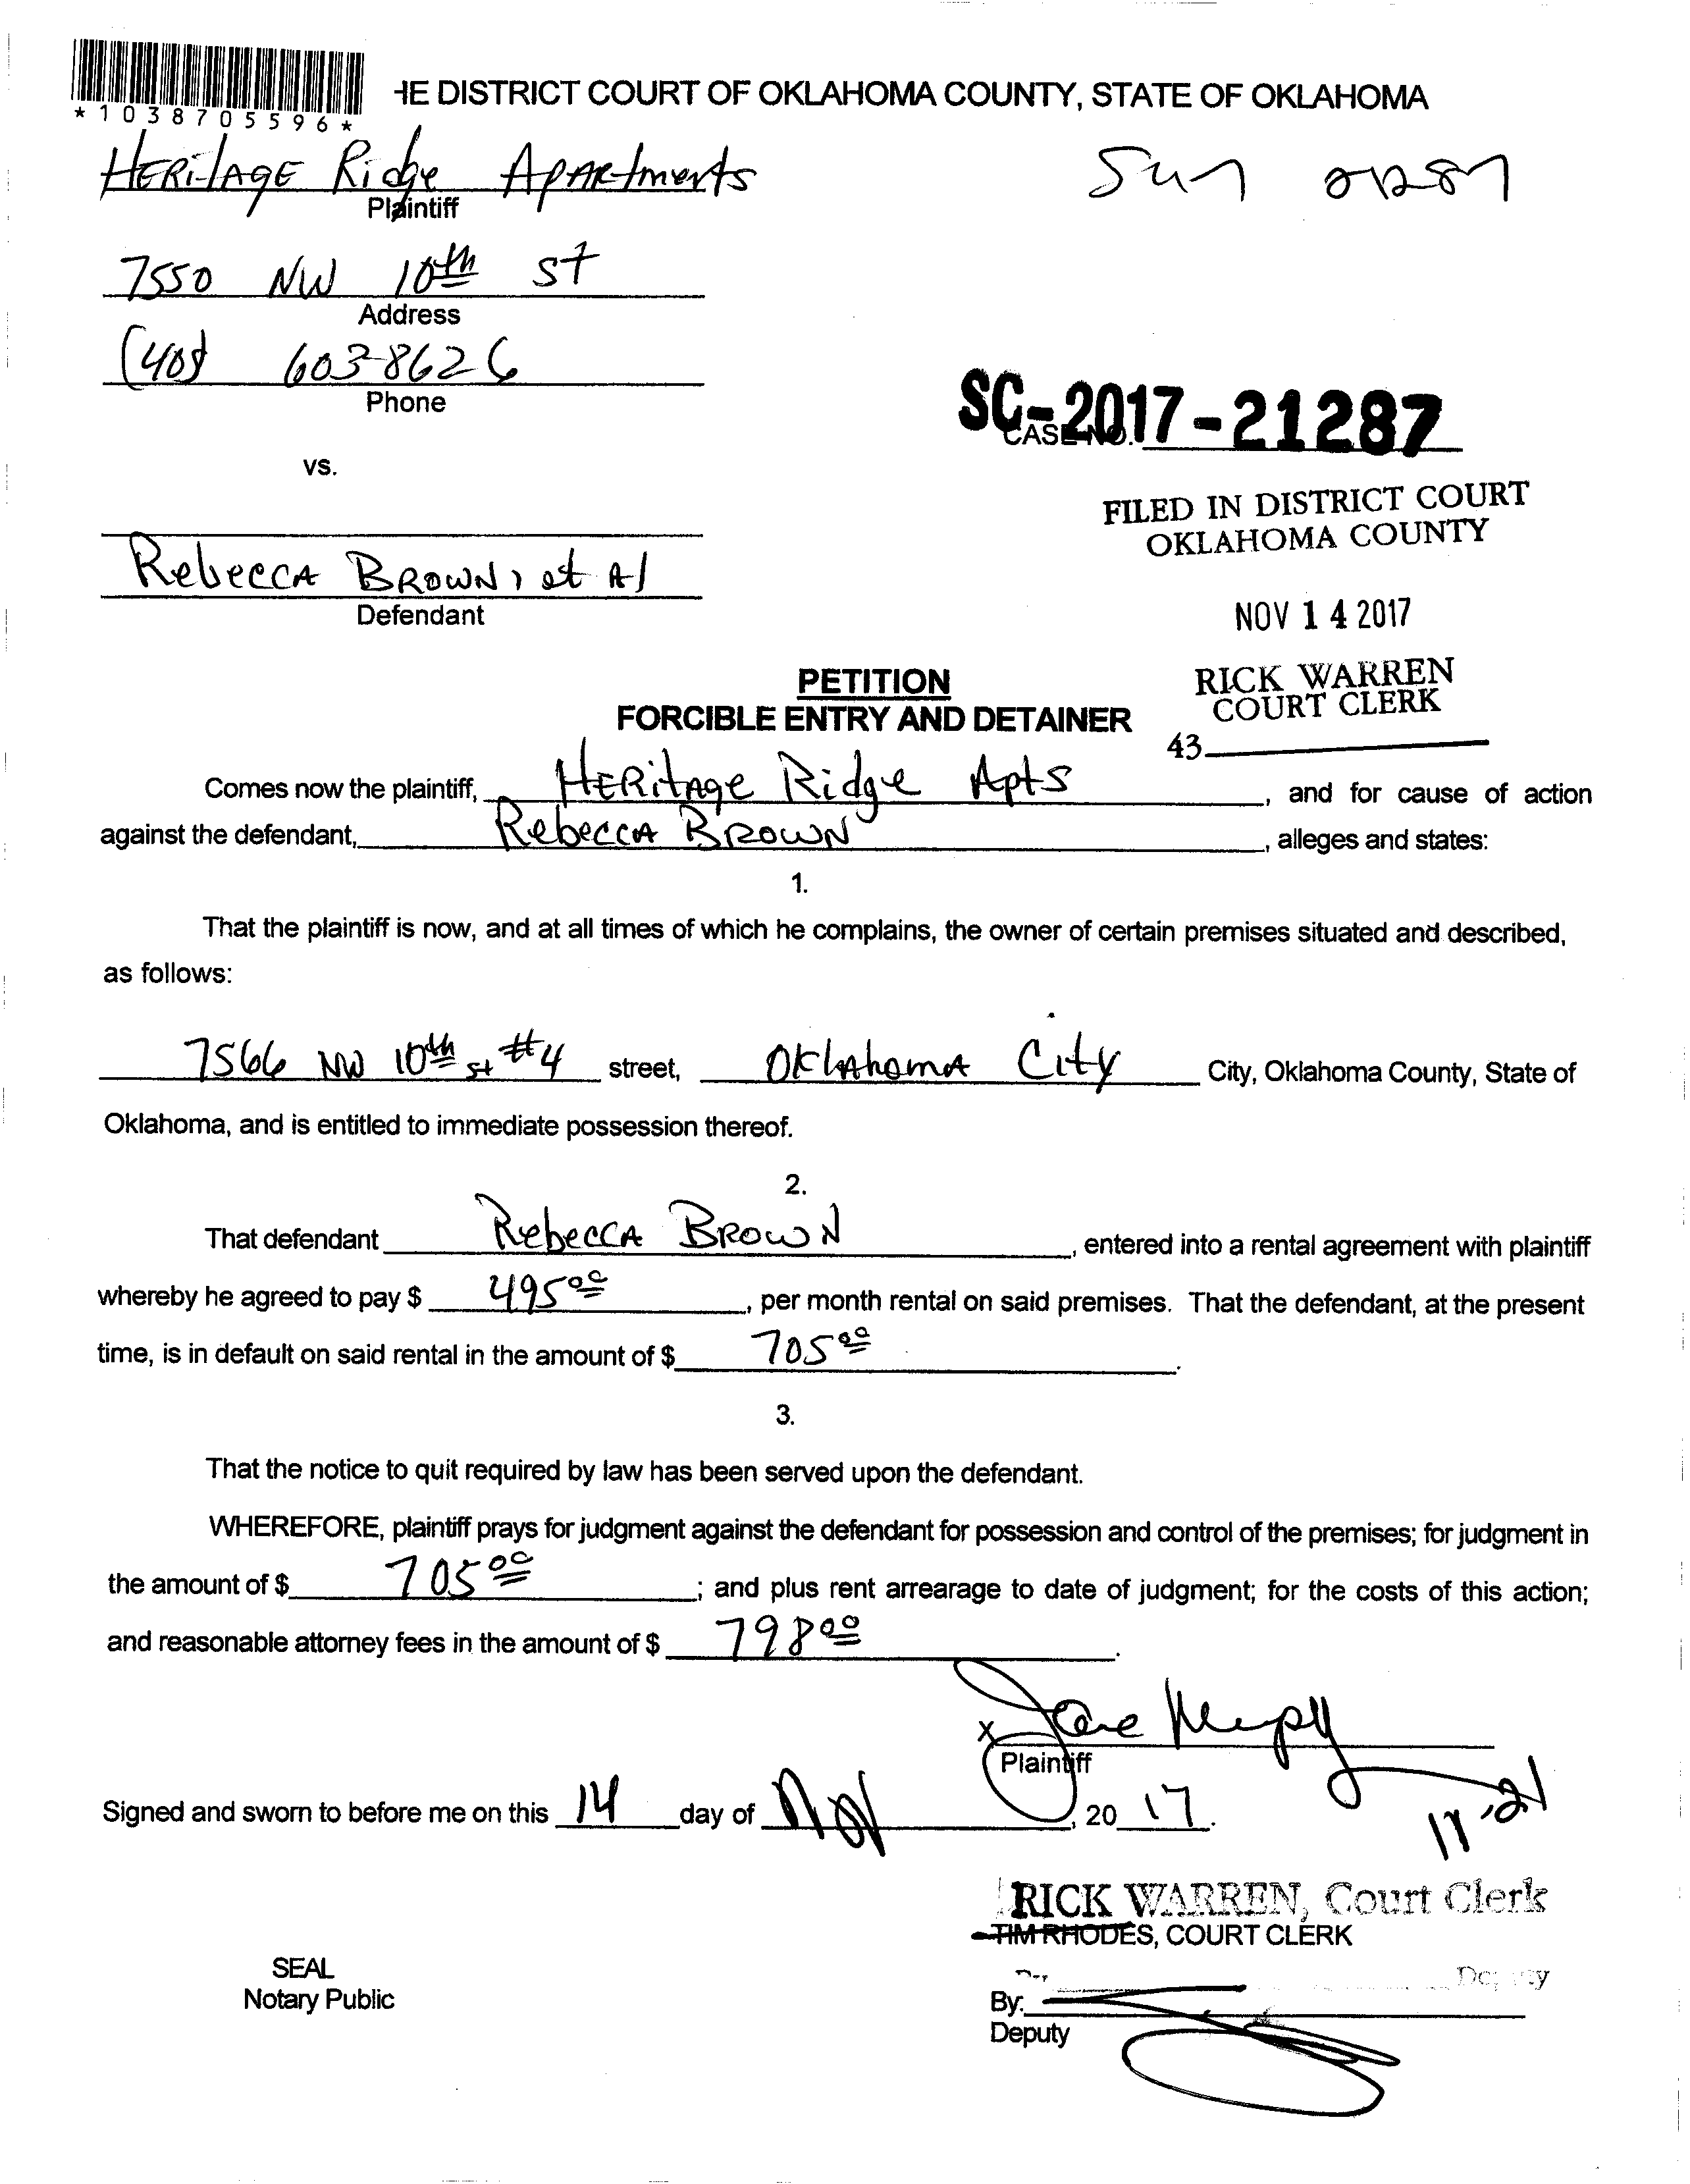 *1038705596*
HE DISTRICT COURT OF OKLAHOMA COUNTY, STATE OF OKLAHOMA
HERitAGE Ridge Apartments
Plaintiff
7550 NW 10th St
Address
(405) 603-8626
Phone
SC-2017-21287
CASE NO.
vs.
FILED IN DISTRICT COURT
OKLAHOMA COUNTY
Rebecca Brown, et Al
Defendant
NOV 14 2017
PETITION
FORCIBLE ENTRY AND DETAINER
RICK WARREN
COURT CLERK
43
Comes now the plaintiff, Heritage Ridge Apts, and for cause of action
against the defendant, Rebecca Brown, alleges and states:
1.
That the plaintiff is now, and at all times of which he complains, the owner of certain premises situated and described,
as follows:
7566 NW 10th st #4 street, Oklahoma City City, Oklahoma County, State of
Oklahoma, and is entitled to immediate possession thereof.
2.
That defendant Rebecca Brown, entered into a rental agreement with plaintiff
whereby he agreed to pay $ 495 00, per month rental on said premises. That the defendant, at the present
time, is in default on said rental in the amount of $ 705 00.
3.
That the notice to quit required by law has been served upon the defendant.
WHEREFORE, plaintiff prays for judgment against the defendant for possession and control of the premises; for judgment in
the amount of $ 705 00; and plus rent arrearage to date of judgment; for the costs of this action;
and reasonable attorney fees in the amount of $ 798 00.
X
Plaintiff
Signed and sworn to before me on this 14 day of Nov, 20 17.
11-21
RICK WARREN, Court Clerk
TIM RHODES, COURT CLERK
SEAL
Notary Public
Deputy
By:
Deputy